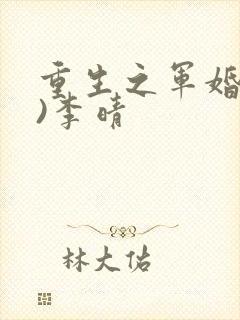 重生之军婚
)李晴
林大佑